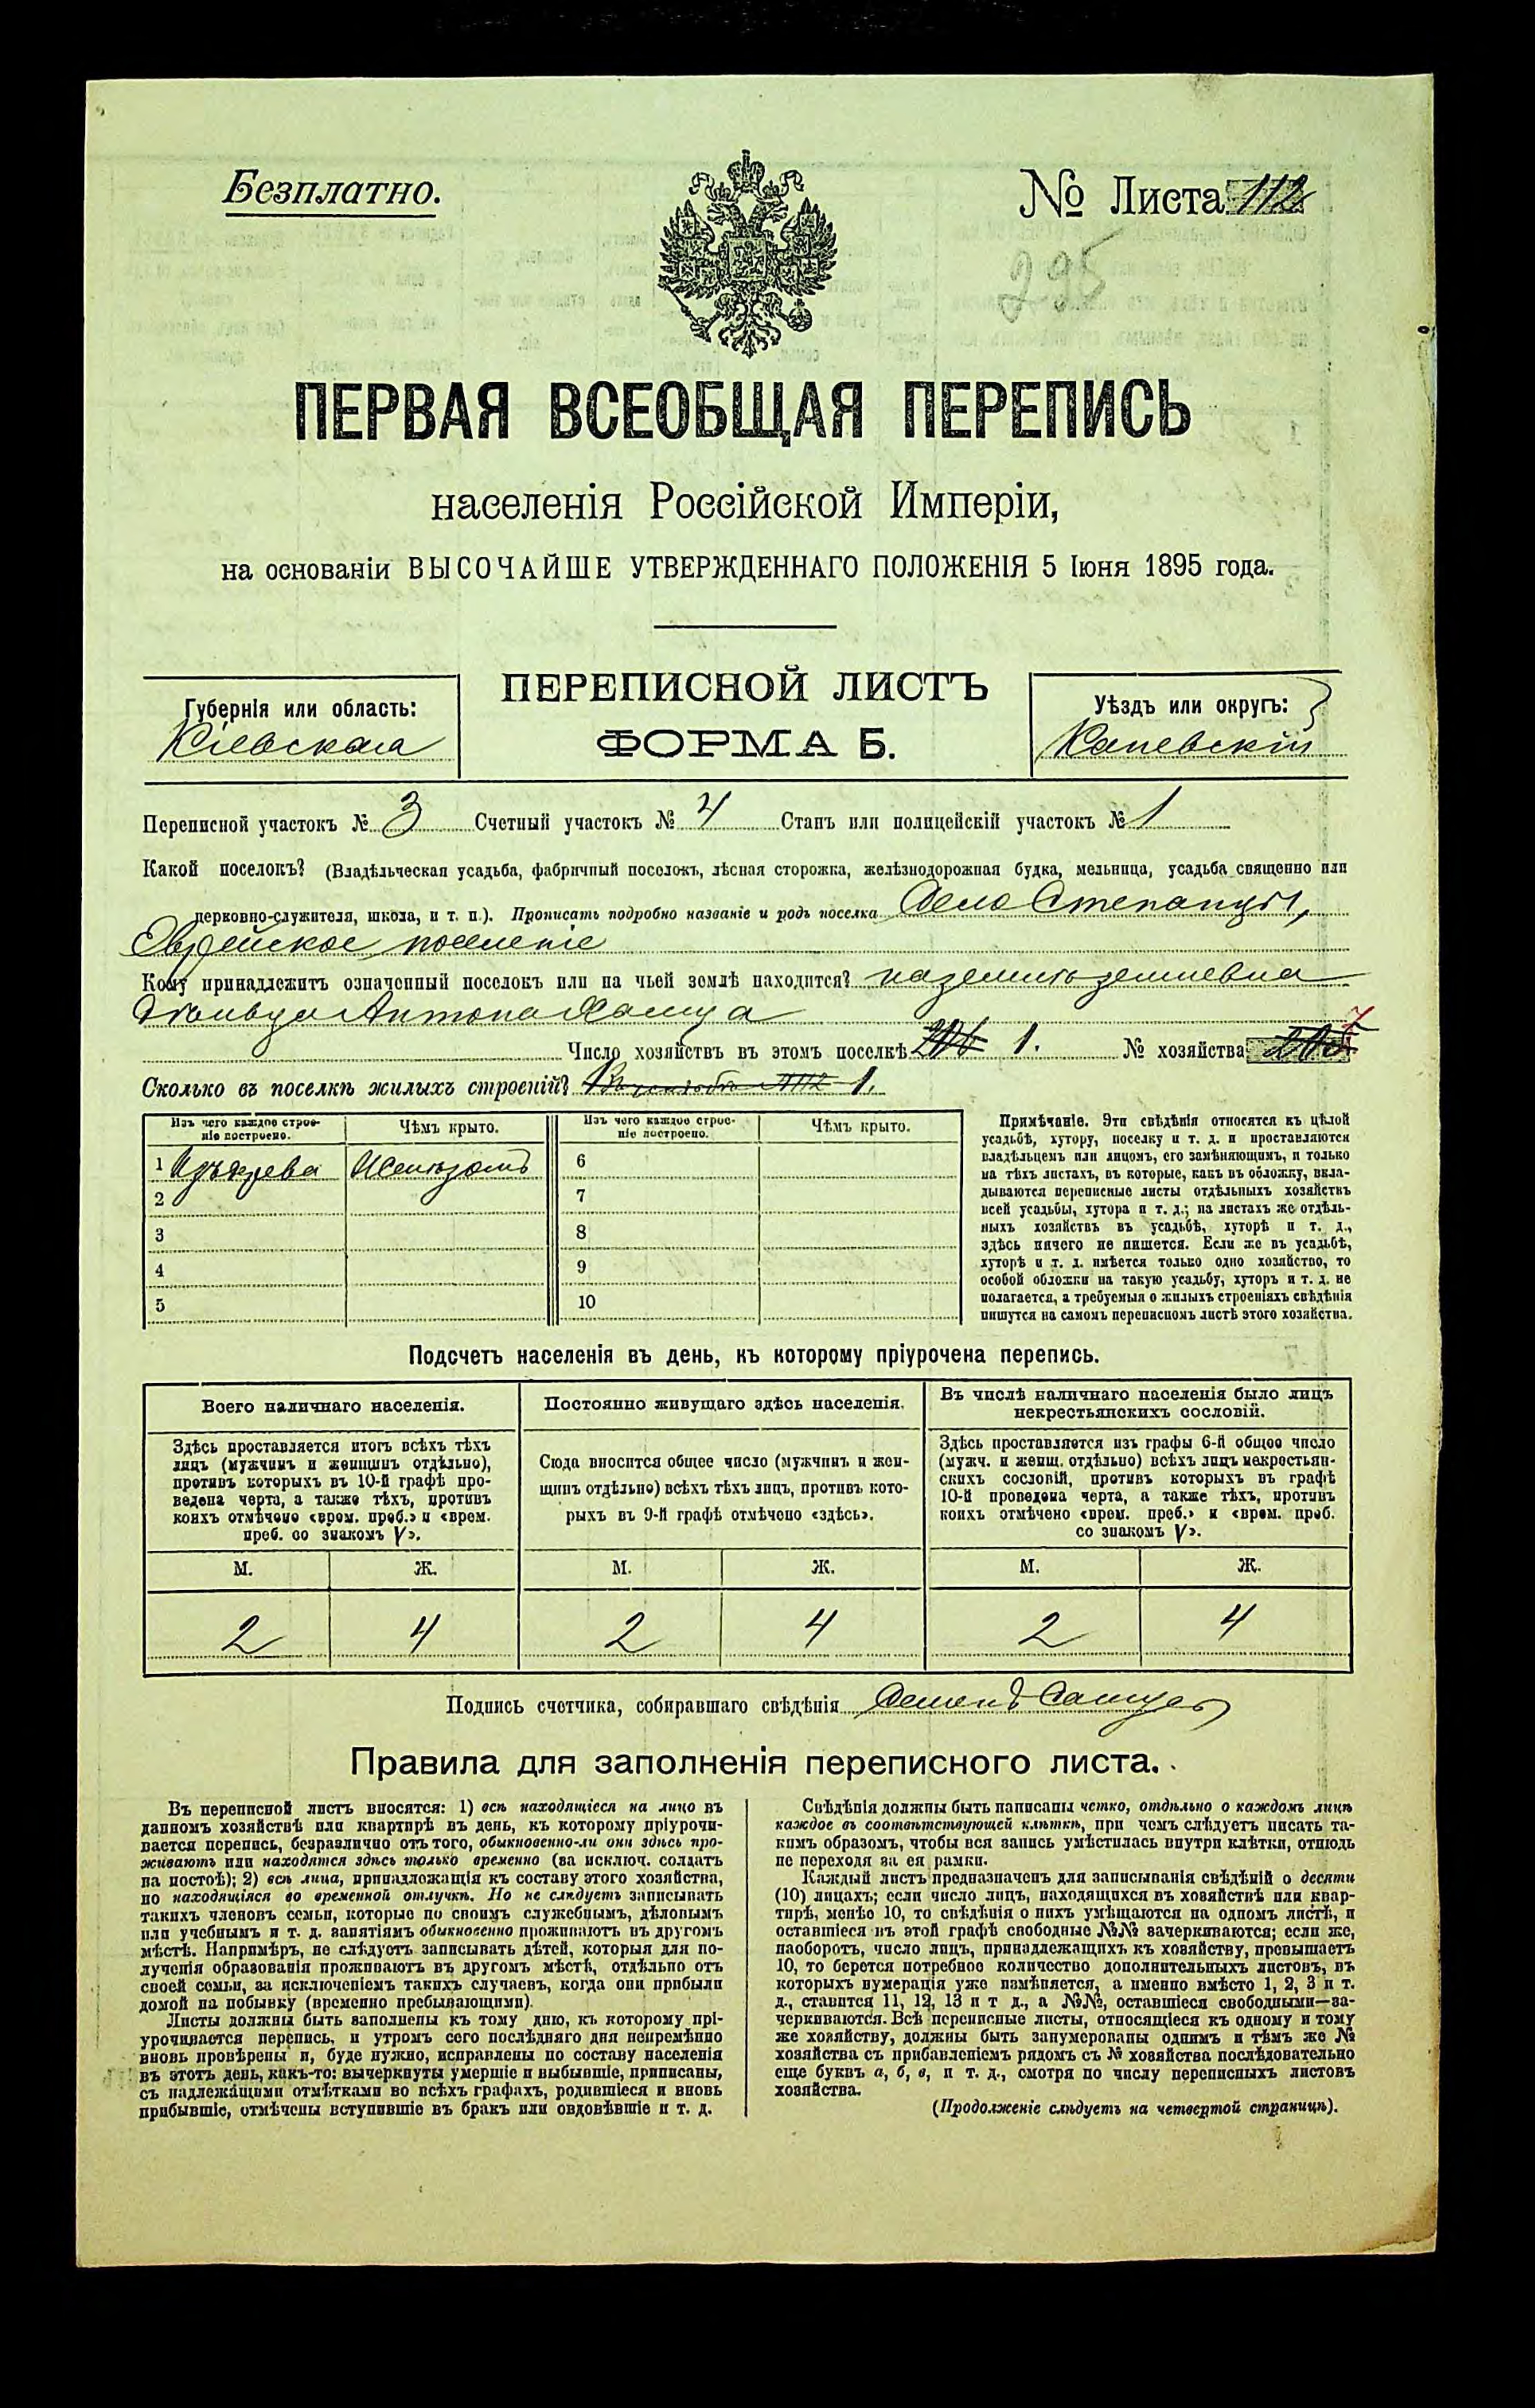 Безплатно.
№ Листа 112
295
ПЕРВАЯ ВСЕОБЩАЯ ПЕРЕПИСЬ
населенія Россійской Имперіи,
на основаніи ВЫСОЧАЙШЕ УТВЕРЖДЕННАГО ПОЛОЖЕНІЯ 5 Іюня 1895 года.
Губернія или область:
Кіевская
ПЕРЕПИСНОЙ ЛИСТЪ
ФОРМА Б.
Уѣздъ или округъ:
Каневскій
Переписной участокъ № 3 Счетный участокъ № 4 Станъ или полицейскій участокъ № 1
Какой поселокъ? (Владѣльческая усадьба, фабричный поселокъ, лѣсная сторожка, желѣзнодорожная будка, мельница, усадьба священно или
церковно-служителя, школа, и т. п.). Прописать подробно названіе и родъ поселка Село Степанцы,
Еврейское поселеніе
Кому принадлежитъ означенный поселокъ или на чьей землѣ находится?
Антона
Число хозяйствъ въ этомъ поселкѣ 1. № хозяйства 7
Сколько въ поселкѣ жилыхъ строеній? 1.
Изъ чего каждое строе-
ніе построено.
Чѣмъ крыто.
Изъ чего каждое строе-
ніе построено.
Чѣмъ крыто.
1 Изъ дерева Желѣзомъ 6
2 7
3 8
4 9
5 10
Примѣчаніе. Эти свѣдѣнія относятся къ цѣлой
усадьбѣ, хутору, поселку и т. д. и проставляются
владѣльцемъ или лицомъ, его замѣняющимъ, и только
на тѣхъ листахъ, въ которые, какъ въ обложку, вкла-
дываются переписные листы отдѣльныхъ хозяйствъ
всей усадьбы, хутора и т. д.; на листахъ же отдѣль-
ныхъ хозяйствъ въ усадьбѣ, хуторѣ и т. д.,
здѣсь ничего не пишется. Если же въ усадьбѣ,
хуторѣ и т. д. имѣется только одно хозяйство, то
особой обложки на такую усадьбу, хуторъ и т. д. не
полагается, а требуемыя о жилыхъ строеніяхъ свѣдѣнія
пишутся на самомъ переписномъ листѣ этого хозяйства.
Подсчетъ населенія въ день, къ которому пріурочена перепись.
Всего наличнаго населенія.
Постоянно живущаго здѣсь населенія.
Въ числѣ наличнаго населенія было лицъ
некрестьянскихъ сословій.
Здѣсь проставляется итогъ всѣхъ тѣхъ
лицъ (мужчинъ и женщинъ отдѣльно),
противъ которыхъ въ 10-й графѣ про-
ведена черта, а также тѣхъ, противъ
коихъ отмѣчено «врем. преб.» и «врем.
преб. со знакомъ V».
Сюда вносится общее число (мужчинъ и жен-
щинъ отдѣльно) всѣхъ тѣхъ лицъ, противъ кото-
рыхъ въ 9-й графѣ отмѣчено «здѣсь».
Здѣсь проставляется изъ графы 6-й общее число
(мужч. и женщ. отдѣльно) всѣхъ лицъ некрестьян-
скихъ сословій, противъ которыхъ въ графѣ
10-й проведена черта, а также тѣхъ, противъ
коихъ отмѣчено «врем. преб.» и «врем. преб.
со знакомъ V».
М. Ж. М. Ж. М. Ж.
2 4 2 4 2 4
Подпись счетчика, собиравшаго свѣдѣнія
Правила для заполненія переписного листа.
Въ переписной листъ вносятся: 1) всѣ находящіеся на лицо въ
данномъ хозяйствѣ или квартирѣ въ день, къ которому пріурочи-
вается перепись, безразлично отъ того, обыкновенно-ли они здѣсь про-
живаютъ или находятся здѣсь только временно (за исключ. солдатъ
на постоѣ); 2) всѣ лица, принадлежащія къ составу этого хозяйства,
но находящіяся во временной отлучкѣ. Но не слѣдуетъ записывать
такихъ членовъ семьи, которые по своимъ служебнымъ, дѣловымъ
или учебнымъ и т. д. занятіямъ обыкновенно проживаютъ въ другомъ
мѣстѣ. Напримѣръ, не слѣдуетъ записывать дѣтей, которыя для по-
лученія образованія проживаютъ въ другомъ мѣстѣ, отдѣльно отъ
своей семьи, за исключеніемъ такихъ случаевъ, когда они прибыли
домой на побывку (временно пребывающими).
Листы должны быть заполнены къ тому дню, къ которому прі-
урочивается перепись, и утромъ сего послѣдняго дня непремѣнно
вновь провѣрены и, буде нужно, исправлены по составу населенія
въ этотъ день, какъ-то: вычеркнуты умершіе и выбывшіе, приписаны,
съ надлежащими отмѣтками во всѣхъ графахъ, родившіеся и вновь
прибывшіе, отмѣчены вступившіе въ бракъ или овдовѣвшіе и т. д.
Свѣдѣнія должны быть написаны четко, отдѣльно о каждомъ лицѣ
каждое въ соотвѣтствующей клѣткѣ, при чемъ слѣдуетъ писать та-
кимъ образомъ, чтобы вся запись умѣстилась внутри клѣтки, отнюдь
не переходя за ея рамки.
Каждый листъ предназначенъ для записыванія свѣдѣній о десяти
(10) лицахъ; если число лицъ, находящихся въ хозяйствѣ или квар-
тирѣ, менѣе 10, то свѣдѣнія о нихъ умѣщаются на одномъ листѣ, и
оставшіеся въ этой графѣ свободные №№ зачеркиваются; если же,
наоборотъ, число лицъ, принадлежащихъ къ хозяйству, превышаетъ
10, то берется потребное количество дополнительныхъ листовъ, въ
которыхъ нумерація уже измѣняется, а именно вмѣсто 1, 2, 3 и т.
д., ставится 11, 12, 13 и т д., а №№, оставшіеся свободными—за-
черкиваются. Всѣ переписные листы, относящіеся къ одному и тому
же хозяйству, должны быть занумерованы однимъ и тѣмъ же №
хозяйства съ прибавленіемъ рядомъ съ № хозяйства послѣдовательно
еще буквъ а, б, в, и т. д., смотря по числу переписныхъ листовъ
хозяйства.
(Продолженіе слѣдуетъ на четвертой страницѣ).